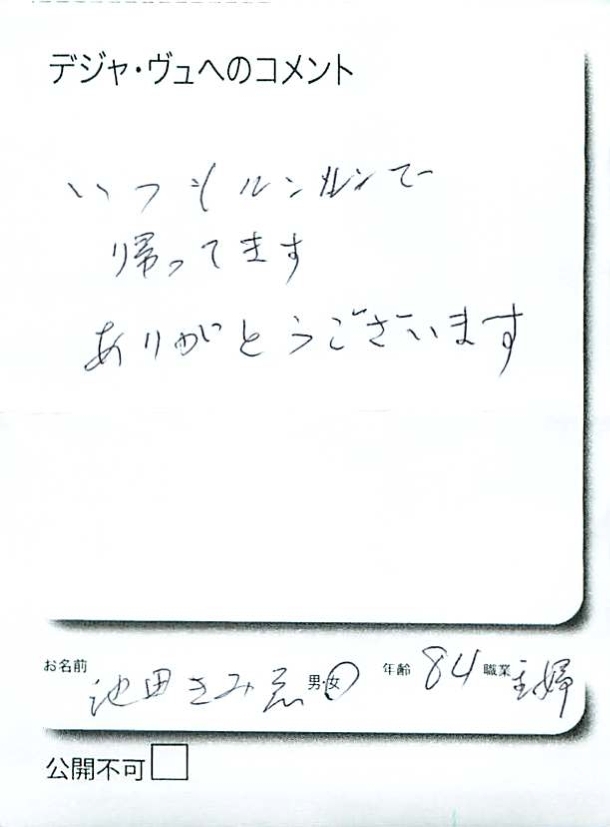 デジャ・ヴュへのコメント
いつもルンルンで
帰ってます
ありがとうございます
お名前 池田きみ恵 男・女 年齢 84 職業 主婦
公開不可